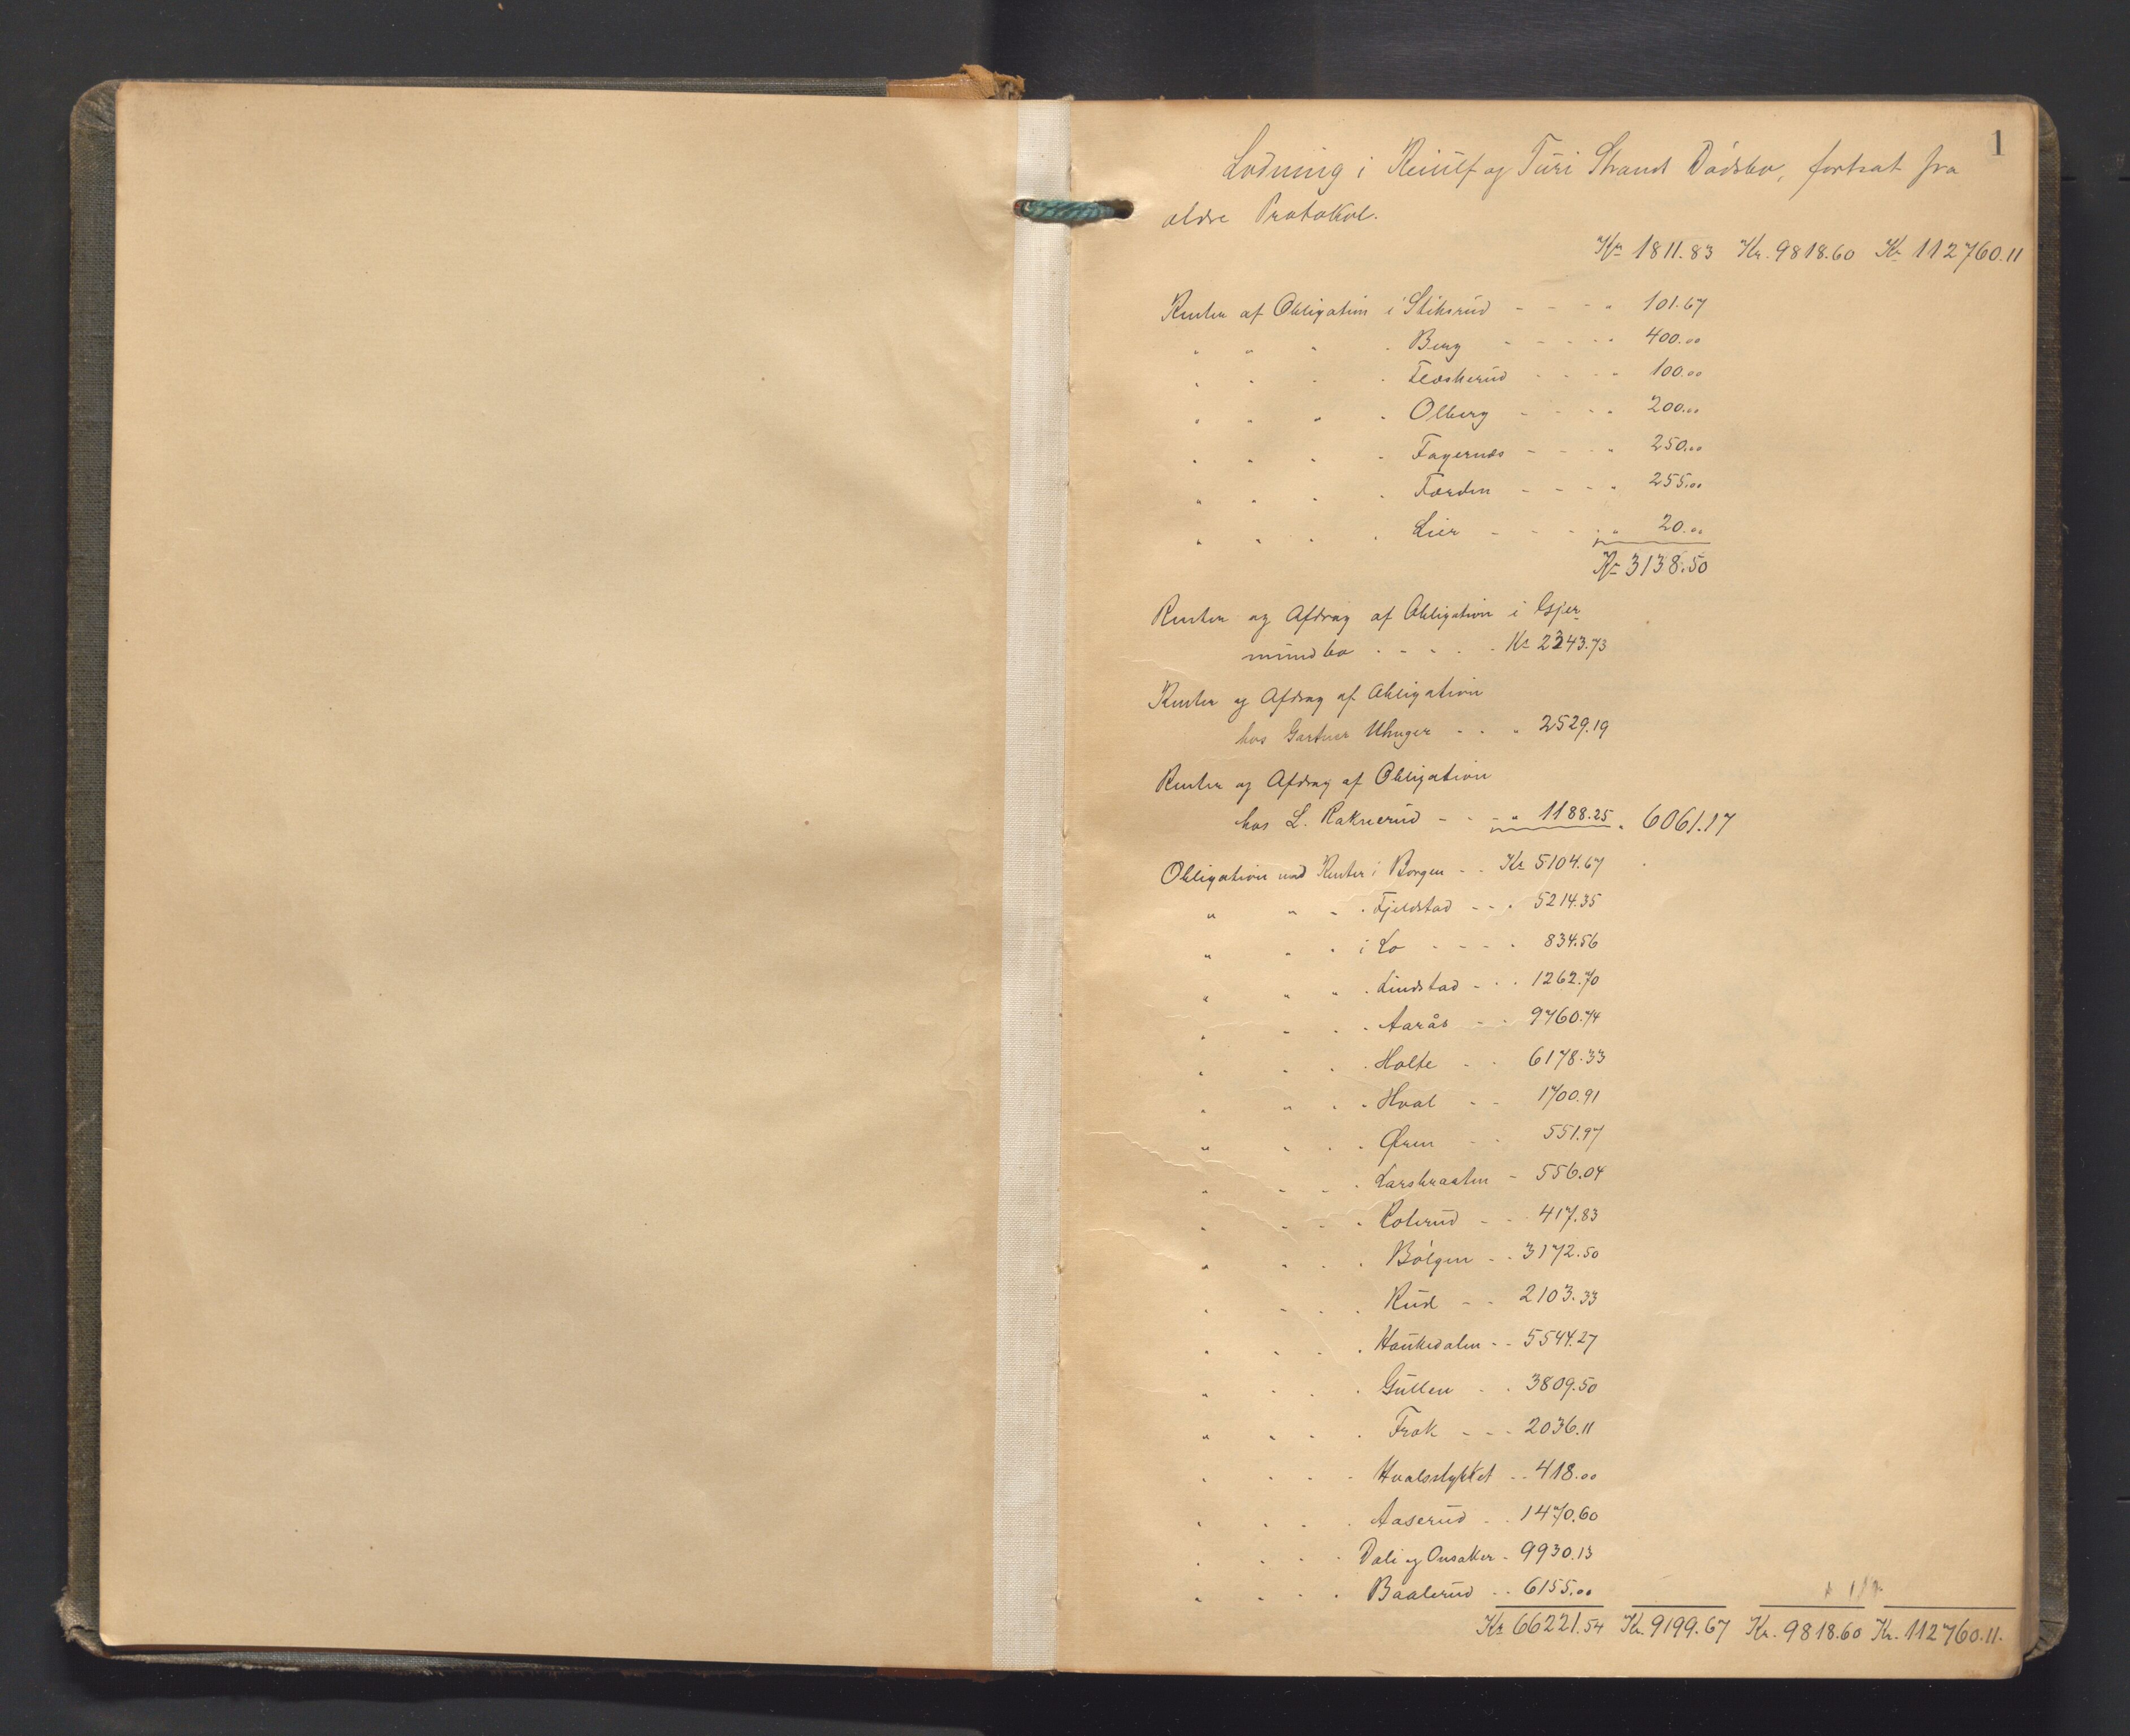 1
Lodning i Reiulf og Turi Strand Dödsbo, fortsat fra
ældre Protokol.
Kr 1811.83 Kr. 9818.60 Kr 112760.11
Renter af Obligation i Stiksrud - - - " 101.67
" " " " Berg - - - - " 400.00
" " " " Fleskerud - - - " 100.00
" " " " Olberg - - - " 200.00
" " " " Fagernæs - - - " 250.00
" " " " Færden - - - " 255.00
" " " " Lier - - - " 20.00
Kr 3138.50
Renter og Afdrag af Obligation i Gjer
mundbo - - - - Kr 2343.73
Renter og Afdrag af Obligation
hos Gartner Unger - - " 2529.19
Renter og Afdrag af Obligation
hos L. Raknerud - - - " 1188.25 " 6061.17
Obligation med Renter i Borgen - - Kr 5104.67
" " " " Fjeldstad - - " 5214.35
" " " i Lo - - - - " 834.56
" " " " Lindstad - - " 1262.70
" " " " Aarås - - 9760.74
" " " " Holte - - 6178.33
" " " " Hval - - 1700.91
" " " " Øren - - 551.97
" " " " Larsbraaten - 556.04
" " " " Rolerud - - 417.83
" " " " Bölgen - - 3172.50
" " " " Rud - - 2103.33
" " " " Haukedalen - - 5544.27
" " " " Gullen - - 3809.50
" " " " Frok - - - 2036.11
" " " " Hvalsstykket - - 418.00
" " " " Aaserud - - 1470.60
" " " " Doli og Onsaker - 9930.13
" " " " Baalerud - - 6155.00
Kr 66221.54 Kr. 9199.67 Kr. 9818.60 Kr. 112760.11.